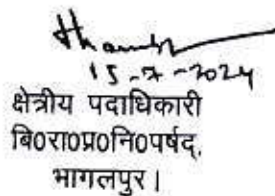 15-7-2024
क्षेत्रीय पदाधिकारी
बि0रा0प्र0नि0पर्षद्,
भागलपुर।